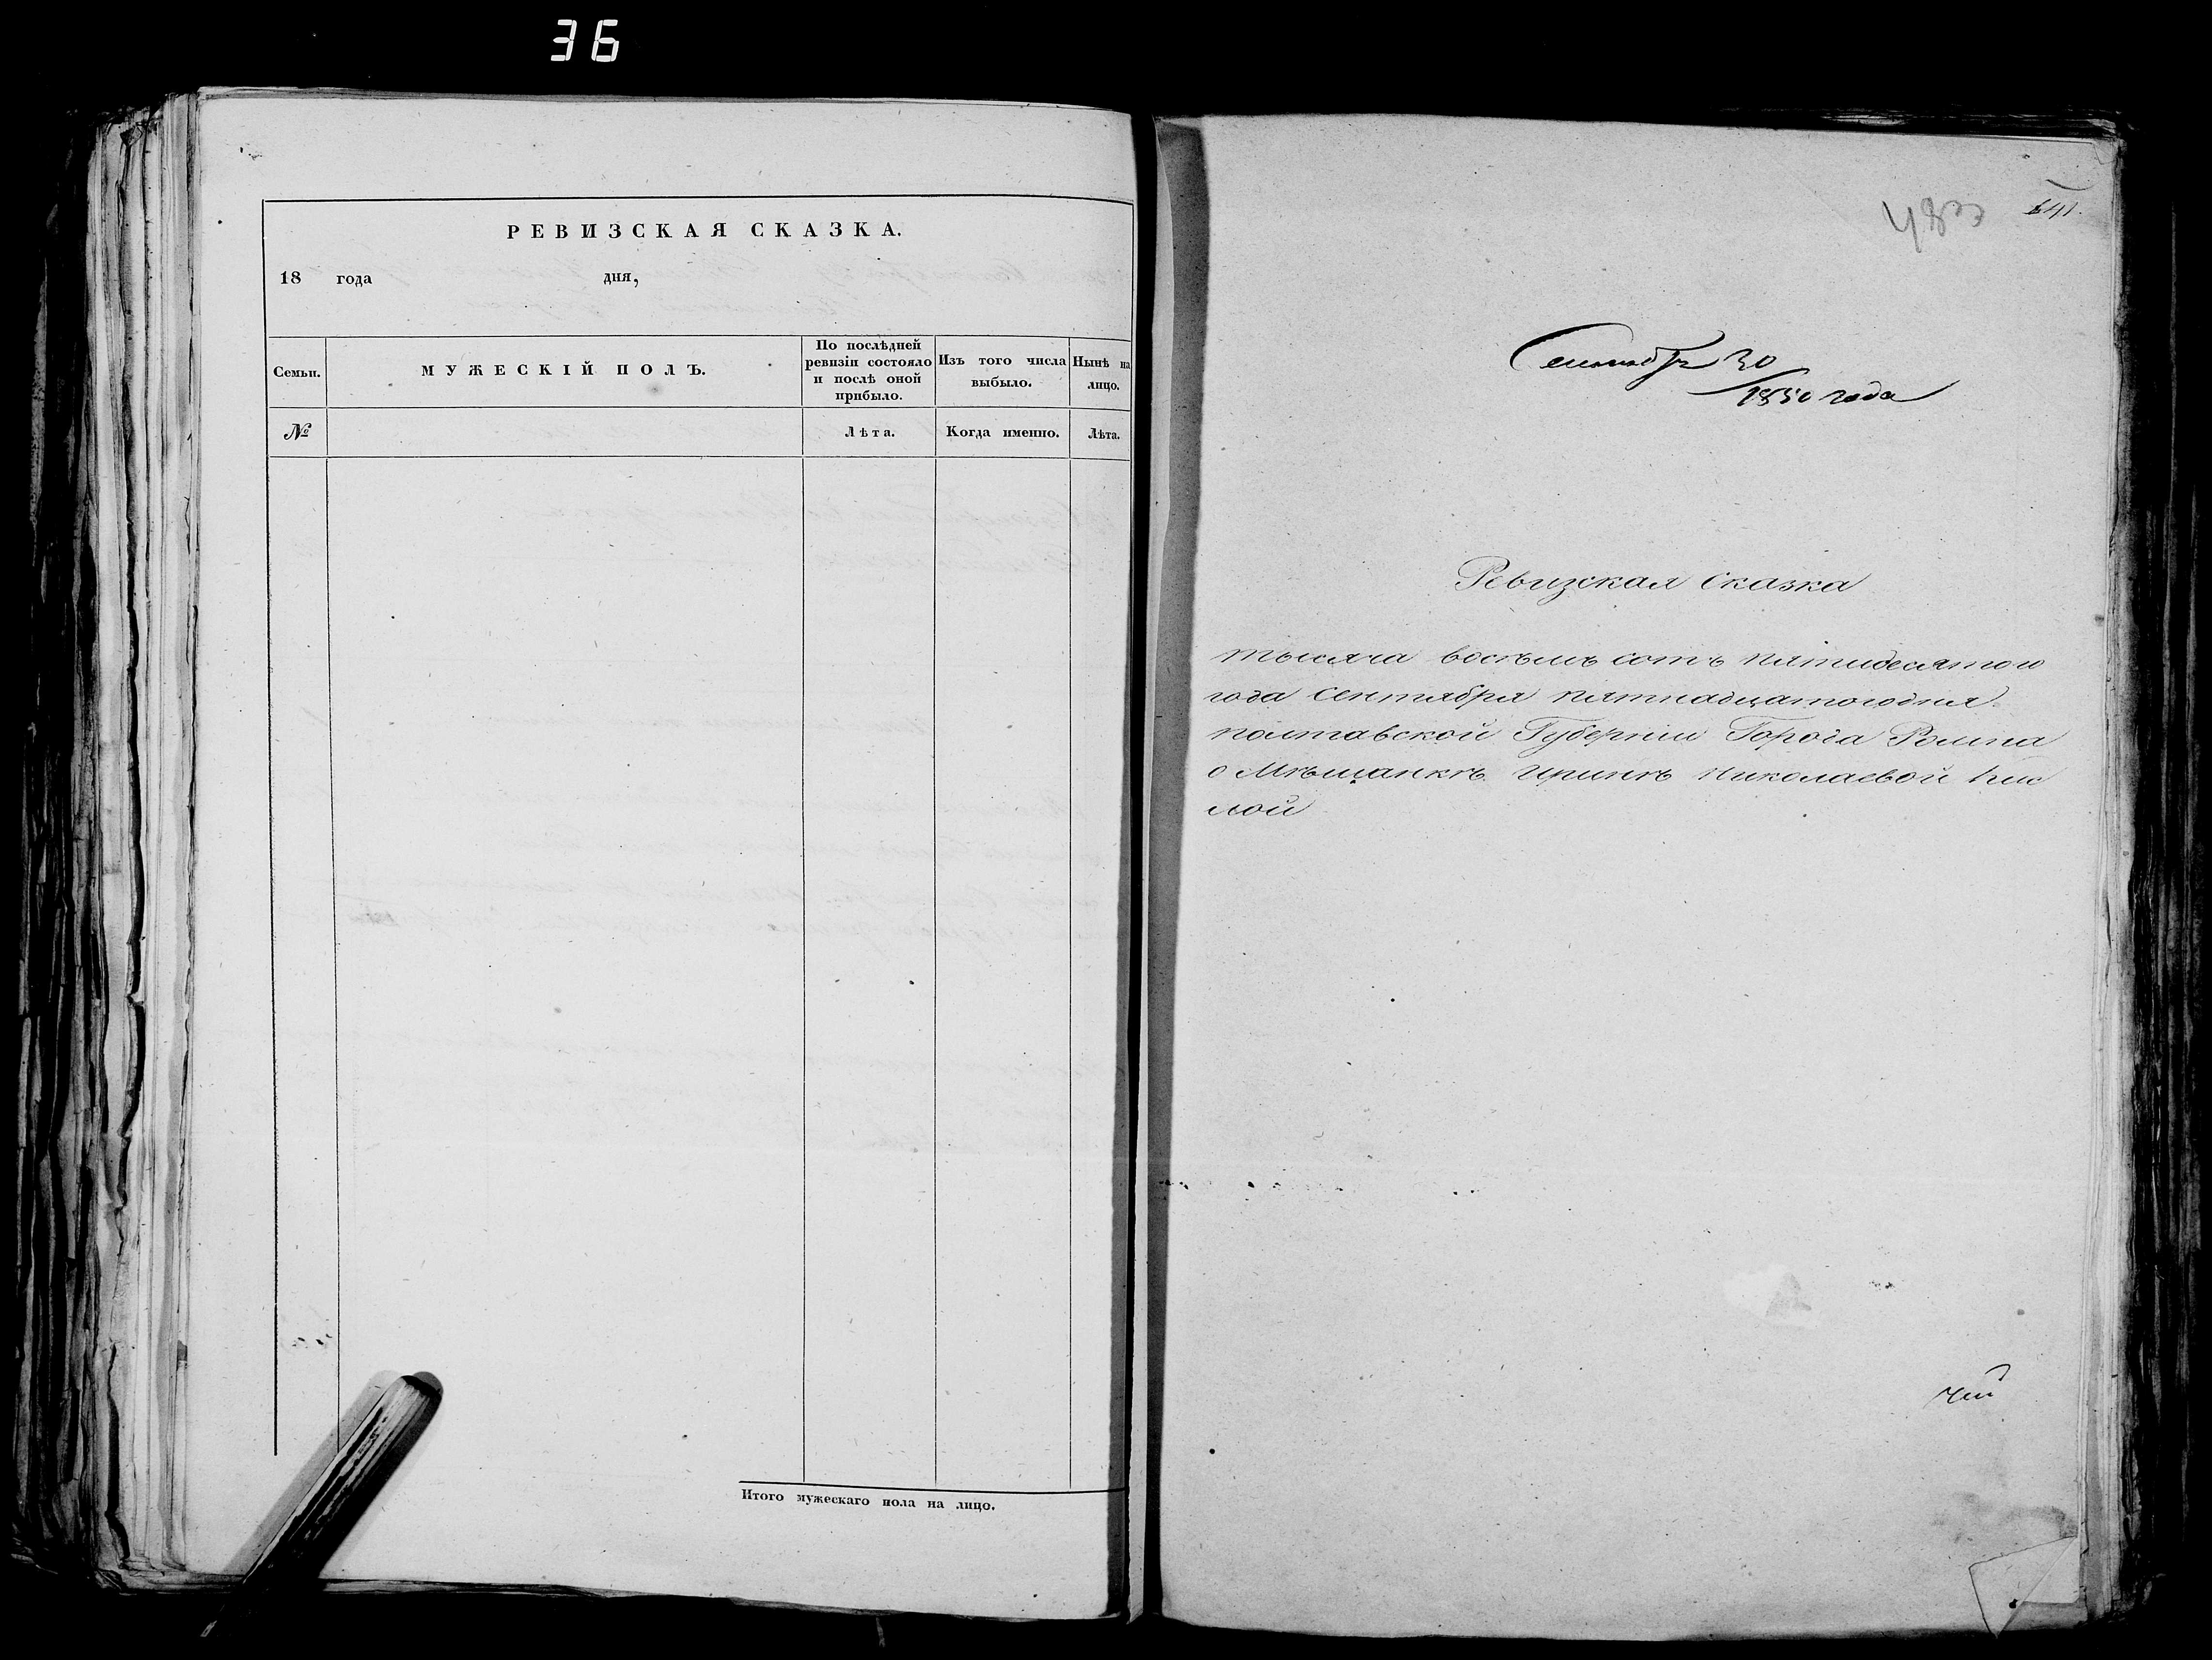 36
РЕВИЗСКАЯ СКАЗКА.
18 года дня,
Семьи.
МУЖЕСКІЙ ПОЛЪ.
По послѣдней
ревизіи состояло
и послѣ оной
прибыло.
Изъ того числа
выбыло.
Нынѣ на
лицо.
№
Лѣта.
Когда именно.
Лѣта.
Итого мужескаго пола на лицо.
641.
Сентября 30
1850 года
Ревизская сказка
тысяча восѣмъ сотъ пятидесятого
года сентября пятнадцатогодня
полтавской Губерніи Города Ромна
о Мѣщанкѣ Иринѣ Николаевой Кис
лой